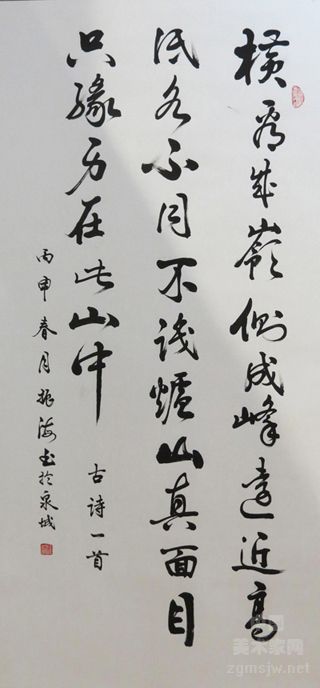 橫看成嶺側成峰遠近高
低各不同不識爐山真面目
只緣身在此山中
古诗一首
丙申春月振海书於泉城
美术家网
zgmsjw.net